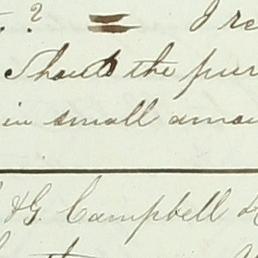 ? = I re
Should the pur
in small amou
& G. Campbell &